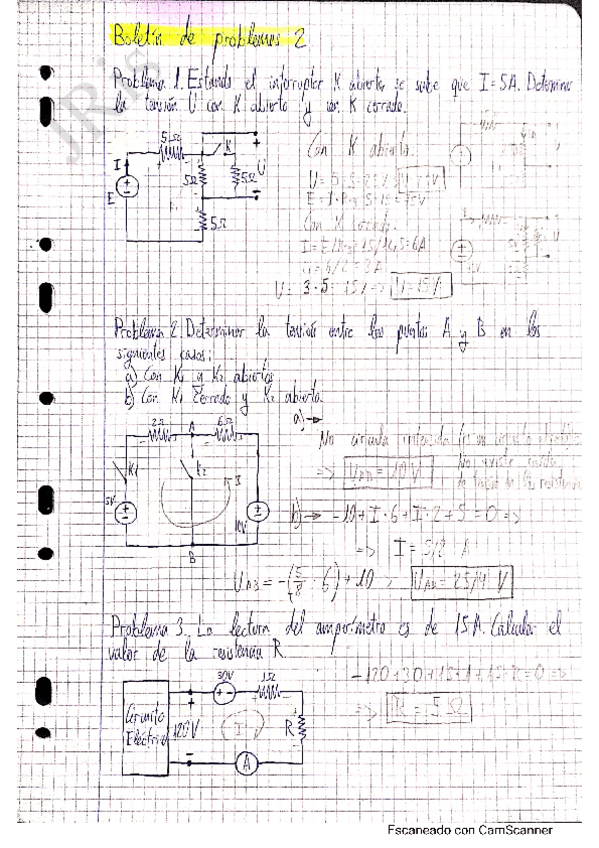 Boletín de problemas 2
Problema 1. Estando el interruptor K abierto se sabe que I = 5A. Determinar
la tensión U con K abierto y con K cerrado.
JRis
5Ω
K
I
5Ω
5Ω
U
E
5Ω
Con K abierto.
E = I·R = 5·15 = 75V
Con K cerrado.
U = 3·5 = 15V => U = 15V
Problema 2. Determinar la tensión entre los puntos A y B en los
siguientes casos:
a) Con K1 y K2 abiertos
b) Con K1 cerrado y K2 abierto
a) →
2Ω
A
6Ω
K1
K2
I
5V
10V
B
No circula intensidad
=> UAB = 10V
No existe caída
b) → -10 + I·6 + I·2 + 5 = 0 =>
=> I = 5/8 A
UAB = -(5/8 · 6) + 10
UAB = 25/4 V
Problema 3. La lectura del amperímetro es de 15A. Calcular el
valor de la resistencia R.
30V
1Ω
Circuito
Eléctrico
120V
I
R
A
-120 + 30 + 15·1 + 15·R = 0 =>
=> R = 5Ω
Escaneado con CamScanner